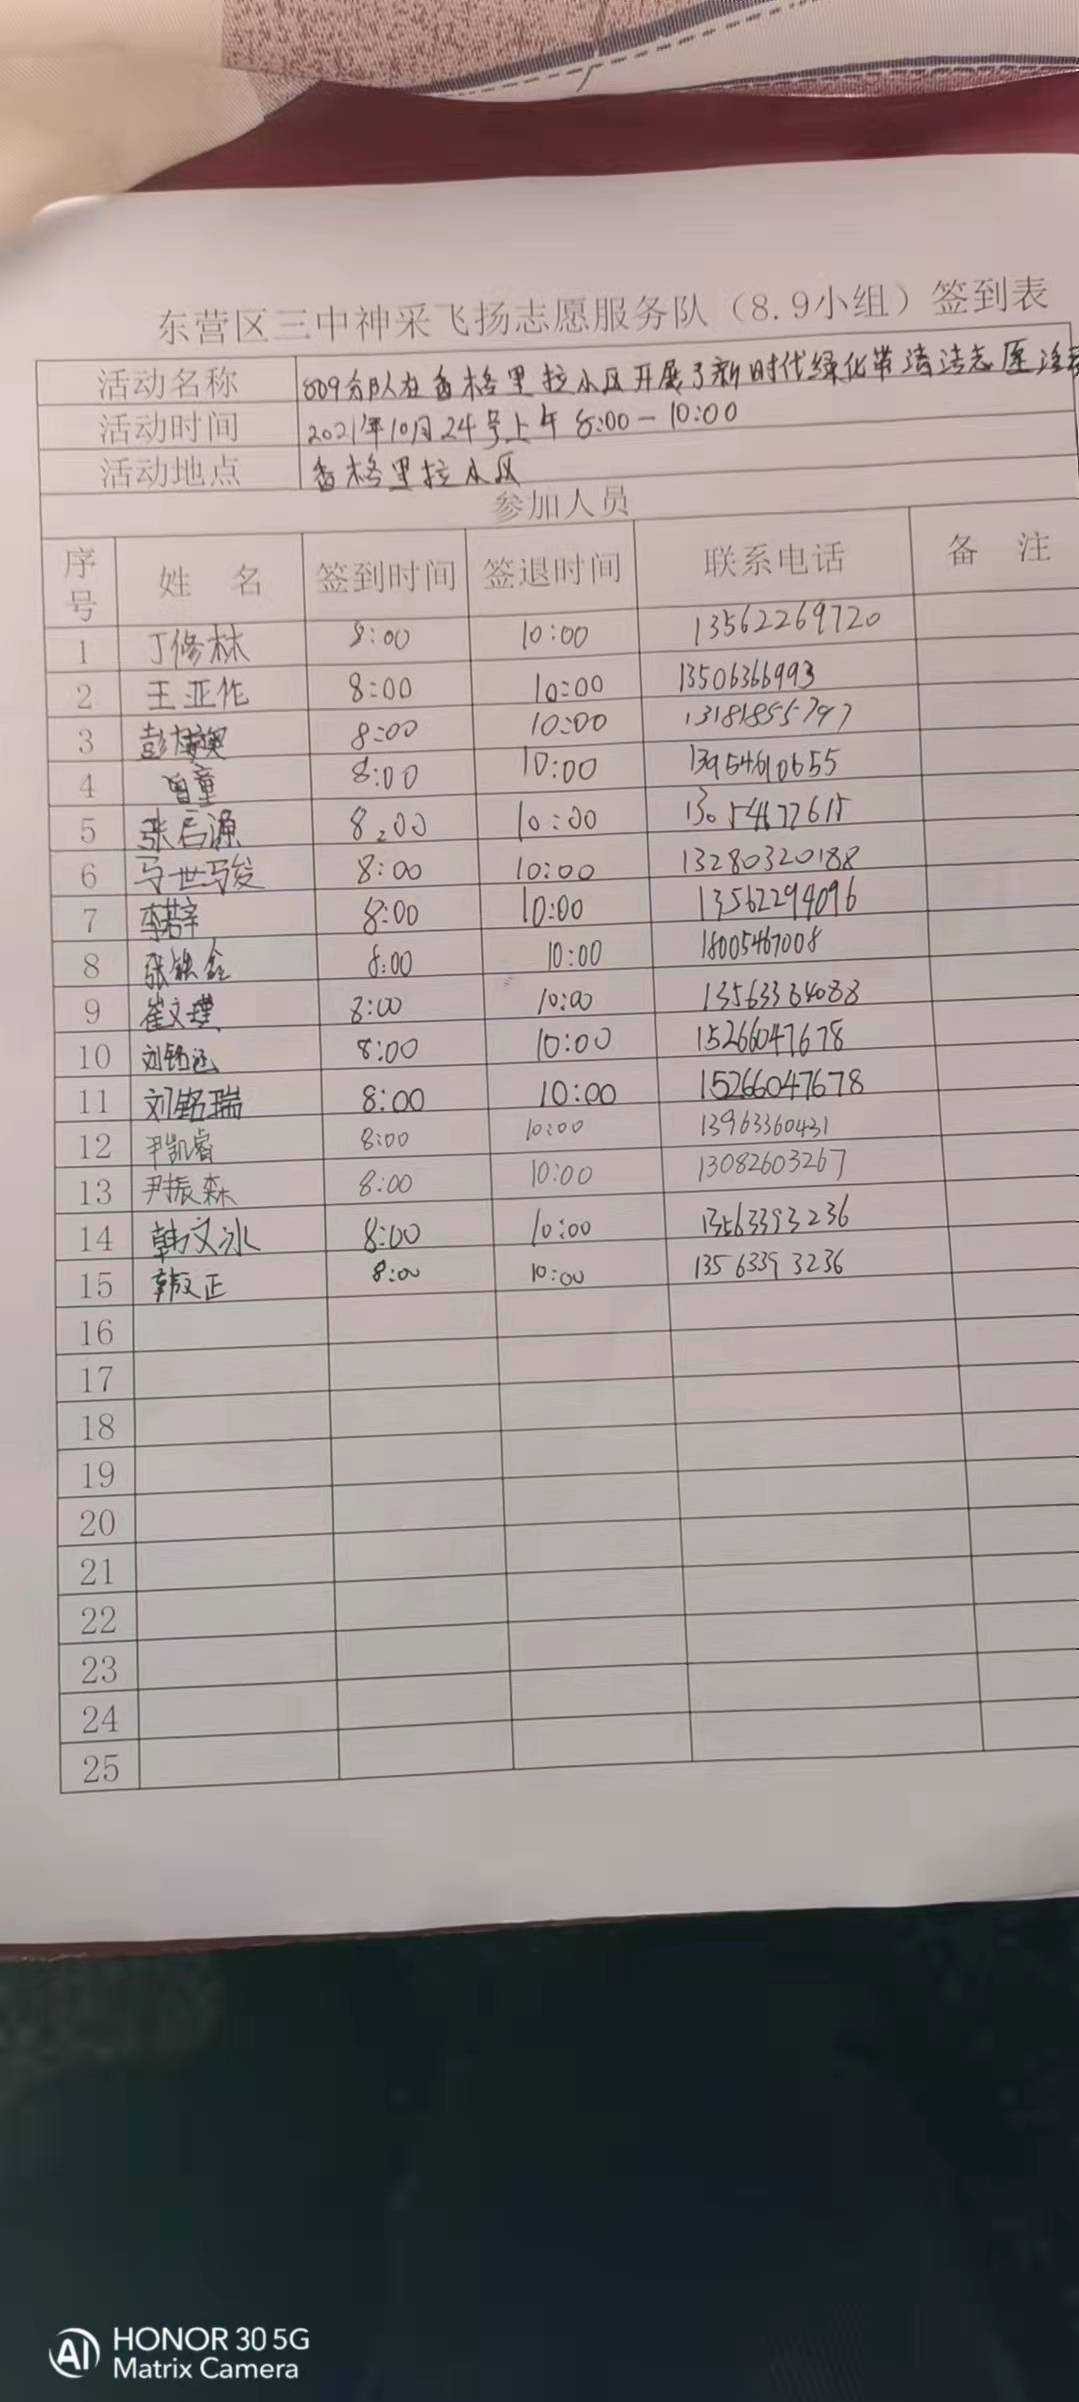 东营区三中神采飞扬志愿服务队（8.9小组）签到表
活动名称 809分队在香格里拉小区开展了新时代绿化带清洁志愿活动
活动时间 2021年10月24号上午 8:00-10:00
活动地点 香格里拉小区
参加人员
序号 姓名 签到时间 签退时间 联系电话 备注
1 丁修林 8:00 10:00 13562269720
2 王亚伦 8:00 10:00 13506366993
3 8:00 10:00 13181855797
4 曾童 8:00 10:00 13954610655
5 张启源 8:00 10:00
6 马世骏 8:00 10:00 13280320188
7 李若辛 8:00 10:00 13562294096
8 8:00 10:00 18005467008
9 崔文璞 8:00 10:00 13563364088
10 8:00 10:00 15266047678
11 刘铭瑞 8:00 10:00 15266047678
12 尹凯睿 8:00 10:00 13963360431
13 尹振森 8:00 10:00 13082603267
14 韩文冰 8:00 10:00 13563393236
15 韩文正 8:00 10:00 13563393236
16
17
18
19
20
21
22
23
24
25
AI HONOR 30 5G
Matrix Camera